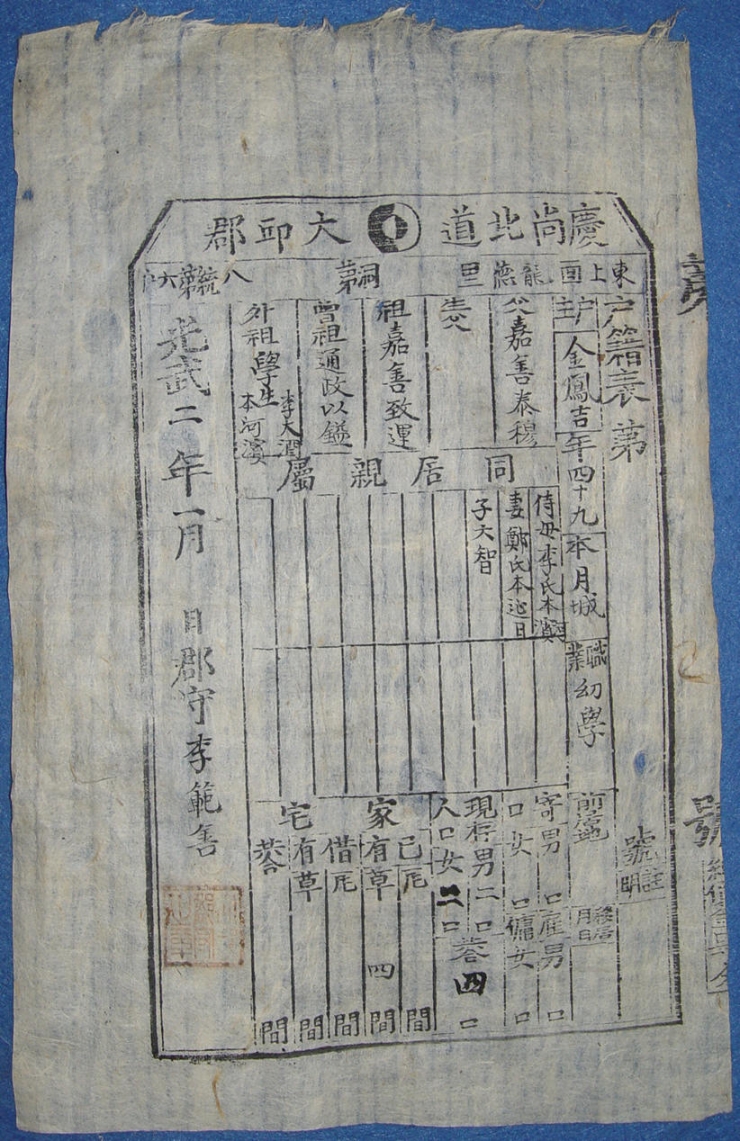 慶尚北道 大邱郡
東上面 龍德里 洞 第八統第六戶
戶籍表 第 號
註明
戶主 金鳳吉 年四十九 本月城 職業 幼學
前居地
移居月日
父嘉善泰穆
生父
祖嘉善致運
曾祖通政以鎰
外祖學生李大潤
本河濱
同居親屬
侍母李氏本河濱
妻鄭氏本迎日
子大智
寄口 男 口 女 口
雇傭 男 口 女 口
現存人口 男二口 女二口 共四口
家宅
已有 瓦 間 草四間
借有 瓦 間 草 間
共 間
光武二年一月 日 郡守李範善
號